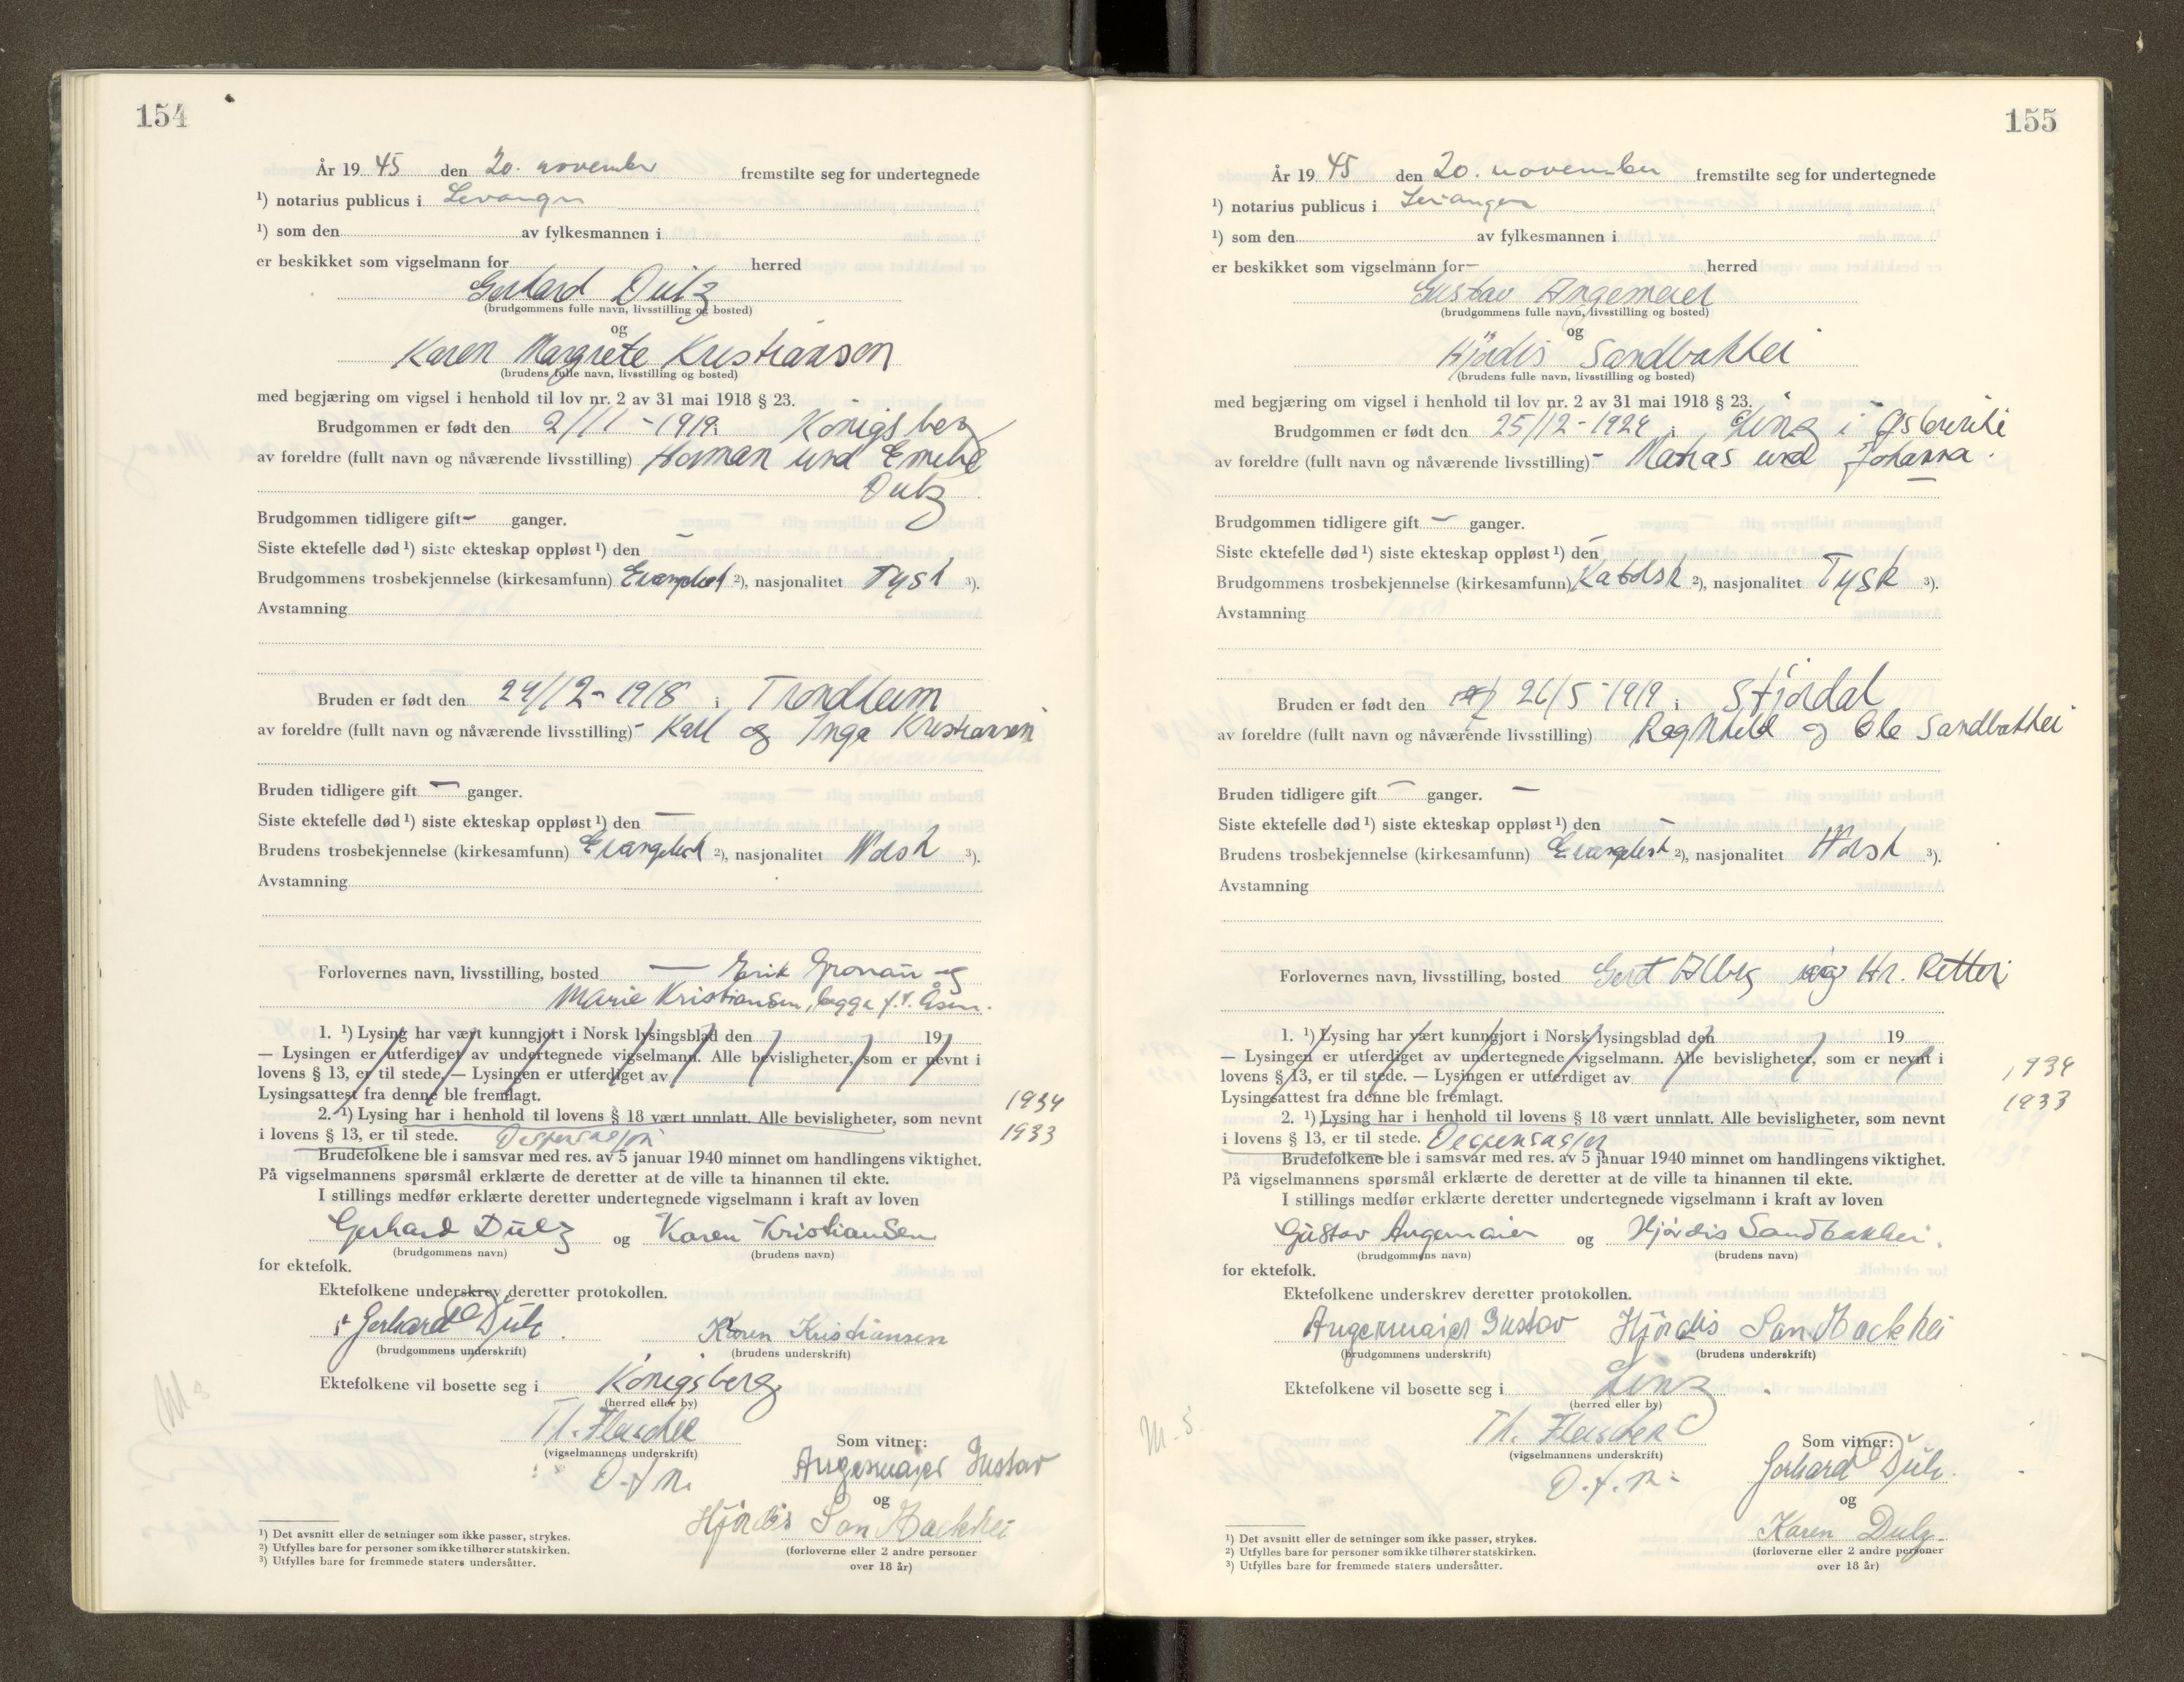 154
År 19 45 den 20. november fremstilte seg for undertegnede
¹) notarius publicus i Levanger
¹) som den av fylkesmannen i
er beskikket som vigselmann for herred
Gerhard Dulz
(brudgommens fulle navn, livsstilling og bosted)
og
Karen Margrete Kristiansen
(brudens fulle navn, livsstilling og bosted)
med begjæring om vigsel i henhold til lov nr. 2 av 31 mai 1918 § 23.
Brudgommen er født den 2/11 - 1919 i Königsberg
av foreldre (fullt navn og nåværende livsstilling) Herman und Emelie
Dulz
Brudgommen tidligere gift - ganger.
Siste ektefelle død ¹) siste ekteskap oppløst ¹) den -
Brudgommens trosbekjennelse (kirkesamfunn) Evangelisk ²), nasjonalitet Tysk ³).
Avstamning
Bruden er født den 24/12 - 1918 i Trondheim
av foreldre (fullt navn og nåværende livsstilling) - Karl og Inga Kristiansen
Bruden tidligere gift - ganger.
Siste ektefelle død ¹) siste ekteskap oppløst ¹) den -
Brudens trosbekjennelse (kirkesamfunn) Evangelisk ²), nasjonalitet Norsk ³).
Avstamning
Forlovernes navn, livsstilling, bosted - Erik Gronau og
Marie Kristiansen, begge f.t. Åsen.
1. ¹) Lysing har vært kunngjort i Norsk lysingsblad den 19
— Lysingen er utferdiget av undertegnede vigselmann. Alle bevisligheter, som er nevnt i
lovens § 13, er til stede. — Lysingen er utferdiget av
Lysingsattest fra denne ble fremlagt.
1934
2. ¹) Lysing har i henhold til lovens § 18 vært unnlatt. Alle bevisligheter, som nevnt
i lovens § 13, er til stede. Dispensasjon
1933
Brudefolkene ble i samsvar med res. av 5 januar 1940 minnet om handlingens viktighet.
På vigselmannens spørsmål erklærte de deretter at de ville ta hinannen til ekte.
I stillings medfør erklærte deretter undertegnede vigselmann i kraft av loven
Gerhard Dulz og Karen Kristiansen
(brudgommens navn) (brudens navn)
for ektefolk.
Ektefolkene underskrev deretter protokollen.
Gerhard Dulz Karen Kristiansen
(brudgommens underskrift) (brudens underskrift)
Ektefolkene vil bosette seg i Königsberg
(herred eller by)
Th. Fleischer
(vigselmannens underskrift)
D.f.n.
Som vitner:
Angermaier Gustav
og
Hjördis Sandbackhei
(forloverne eller 2 andre personer
over 18 år)
¹) Det avsnitt eller de setninger som ikke passer, strykes.
²) Utfylles bare for personer som ikke tilhører statskirken.
³) Utfylles bare for fremmede staters undersåtter.
155
År 19 45 den 20. november fremstilte seg for undertegnede
¹) notarius publicus i Levanger
¹) som den av fylkesmannen i
er beskikket som vigselmann for - herred
Gustav Angemeier
(brudgommens fulle navn, livsstilling og bosted)
og
Hjördis Sandbakkei
(brudens fulle navn, livsstilling og bosted)
med begjæring om vigsel i henhold til lov nr. 2 av 31 mai 1918 § 23.
Brudgommen er født den 25/12 - 1924 i Linz i
av foreldre (fullt navn og nåværende livsstilling) - Matias und Johanna.
Brudgommen tidligere gift - ganger.
Siste ektefelle død ¹) siste ekteskap oppløst ¹) den -
Brudgommens trosbekjennelse (kirkesamfunn) Katolsk ²), nasjonalitet Tysk ³).
Avstamning
Bruden er født den 26/5 - 1919 i Stjördal
av foreldre (fullt navn og nåværende livsstilling) Ragnhild og Ole Sandbakkei
Bruden tidligere gift - ganger. -
Siste ektefelle død ¹) siste ekteskap oppløst ¹) den -
Brudens trosbekjennelse (kirkesamfunn) Evangelisk ²), nasjonalitet Norsk ³).
Avstamning
Forlovernes navn, livsstilling, bosted Gert og Hr.
1. ¹) Lysing har vært kunngjort i Norsk lysingsblad den 19
— Lysingen er utferdiget av undertegnede vigselmann. Alle bevisligheter, som er nevnt i
lovens § 13, er til stede. — Lysingen er utferdiget av
1934
Lysingsattest fra denne ble fremlagt.
1933
2. ¹) Lysing har i henhold til lovens § 18 vært unnlatt. Alle bevisligheter, som nevnt
i lovens § 13, er til stede. Dispensasjon
Brudefolkene ble i samsvar med res. av 5 januar 1940 minnet om handlingens viktighet.
På vigselmannens spørsmål erklærte de deretter at de ville ta hinannen til ekte.
I stillings medfør erklærte deretter undertegnede vigselmann i kraft av loven
Gustav Angemaier og Hjördis Sandbakkei.
(brudgommens navn) (brudens navn)
for ektefolk.
Ektefolkene underskrev deretter protokollen.
Angermaier Gustav Hjördis Sandbackhei
(brudgommens underskrift) (brudens underskrift)
Ektefolkene vil bosette seg i Linz
(herred eller by)
Th. Fleischer
(vigselmannens underskrift)
D.f.n.
Som vitner:
Gerhard Dulz.
og
Karen Dulz
(forloverne eller 2 andre personer
over 18 år)
¹) Det avsnitt eller de setninger som ikke passer, strykes.
²) Utfylles bare for personer som ikke tilhører statskirken.
³) Utfylles bare for fremmede staters undersåtter.